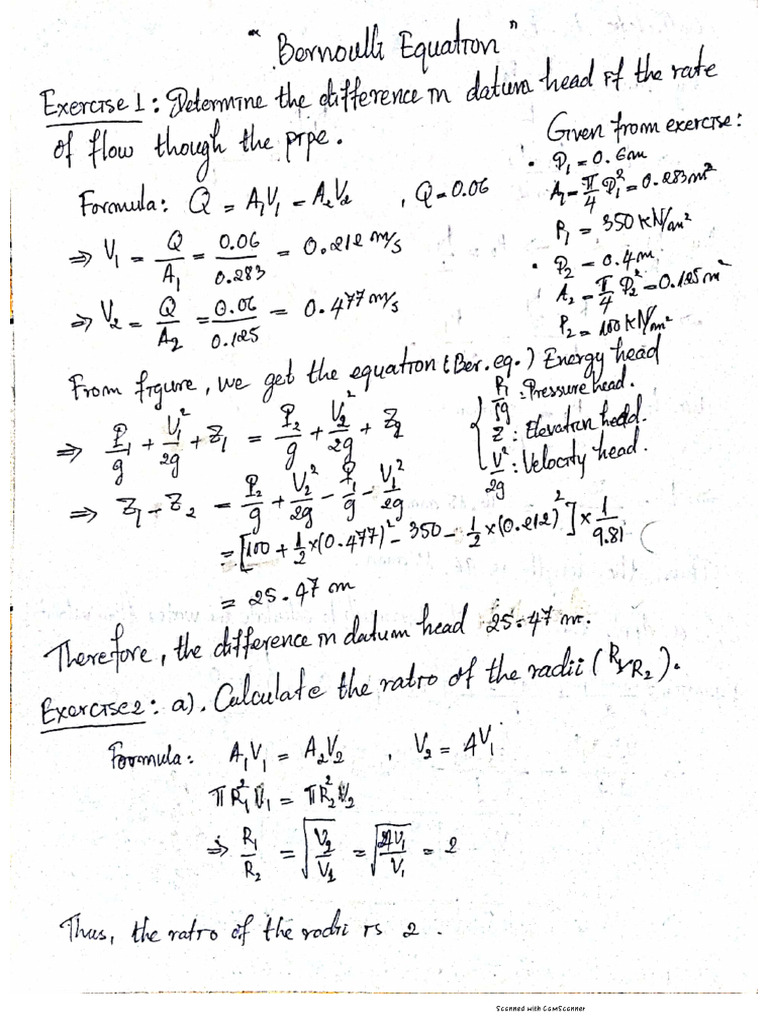 "Bernoulli Equation"
Exercise 1: Determine the difference in datum head if the rate
of flow though the pipe.
Given from exercise:
• D₁ = 0.6m
A₁ = π/4 D₁² = 0.283m²
P₁ = 350 kN/m²
• D₂ = 0.4m
A₂ = π/4 D₂² = 0.125m²
P₂ = 100 kN/m²
Formula: Q = A₁V₁ = A₂V₂ , Q = 0.06
⇒ V₁ = Q/A₁ = 0.06/0.283 = 0.212 m/s
⇒ V₂ = Q/A₂ = 0.06/0.125 = 0.477 m/s
From figure, we get the equation (Ber.eq.) Energy head
P₁/ρg : Pressure head.
Z : Elevation head.
V²/2g : Velocity head.
⇒ P₁/g + V₁²/2g + Z₁ = P₂/g + V₂²/2g + Z₂
⇒ Z₁ - Z₂ = P₂/g + V₂²/2g - P₁/g - V₁²/2g
= [100 + 1/2 × (0.477)² - 350 - 1/2 × (0.212)²] × 1/9.81
= 25.47 m
Therefore, the difference in datum head 25.47 m.
Exercise 2: a). Calculate the ratio of the radii (R₁/R₂).
Formula: A₁V₁ = A₂V₂ , V₂ = 4V₁
πR₁²V₁ = πR₂²V₂
⇒ R₁/R₂ = √(V₂/V₁) = √(4V₁/V₁) = 2
Thus, the ratio of the radii is 2.
Scanned with CamScanner